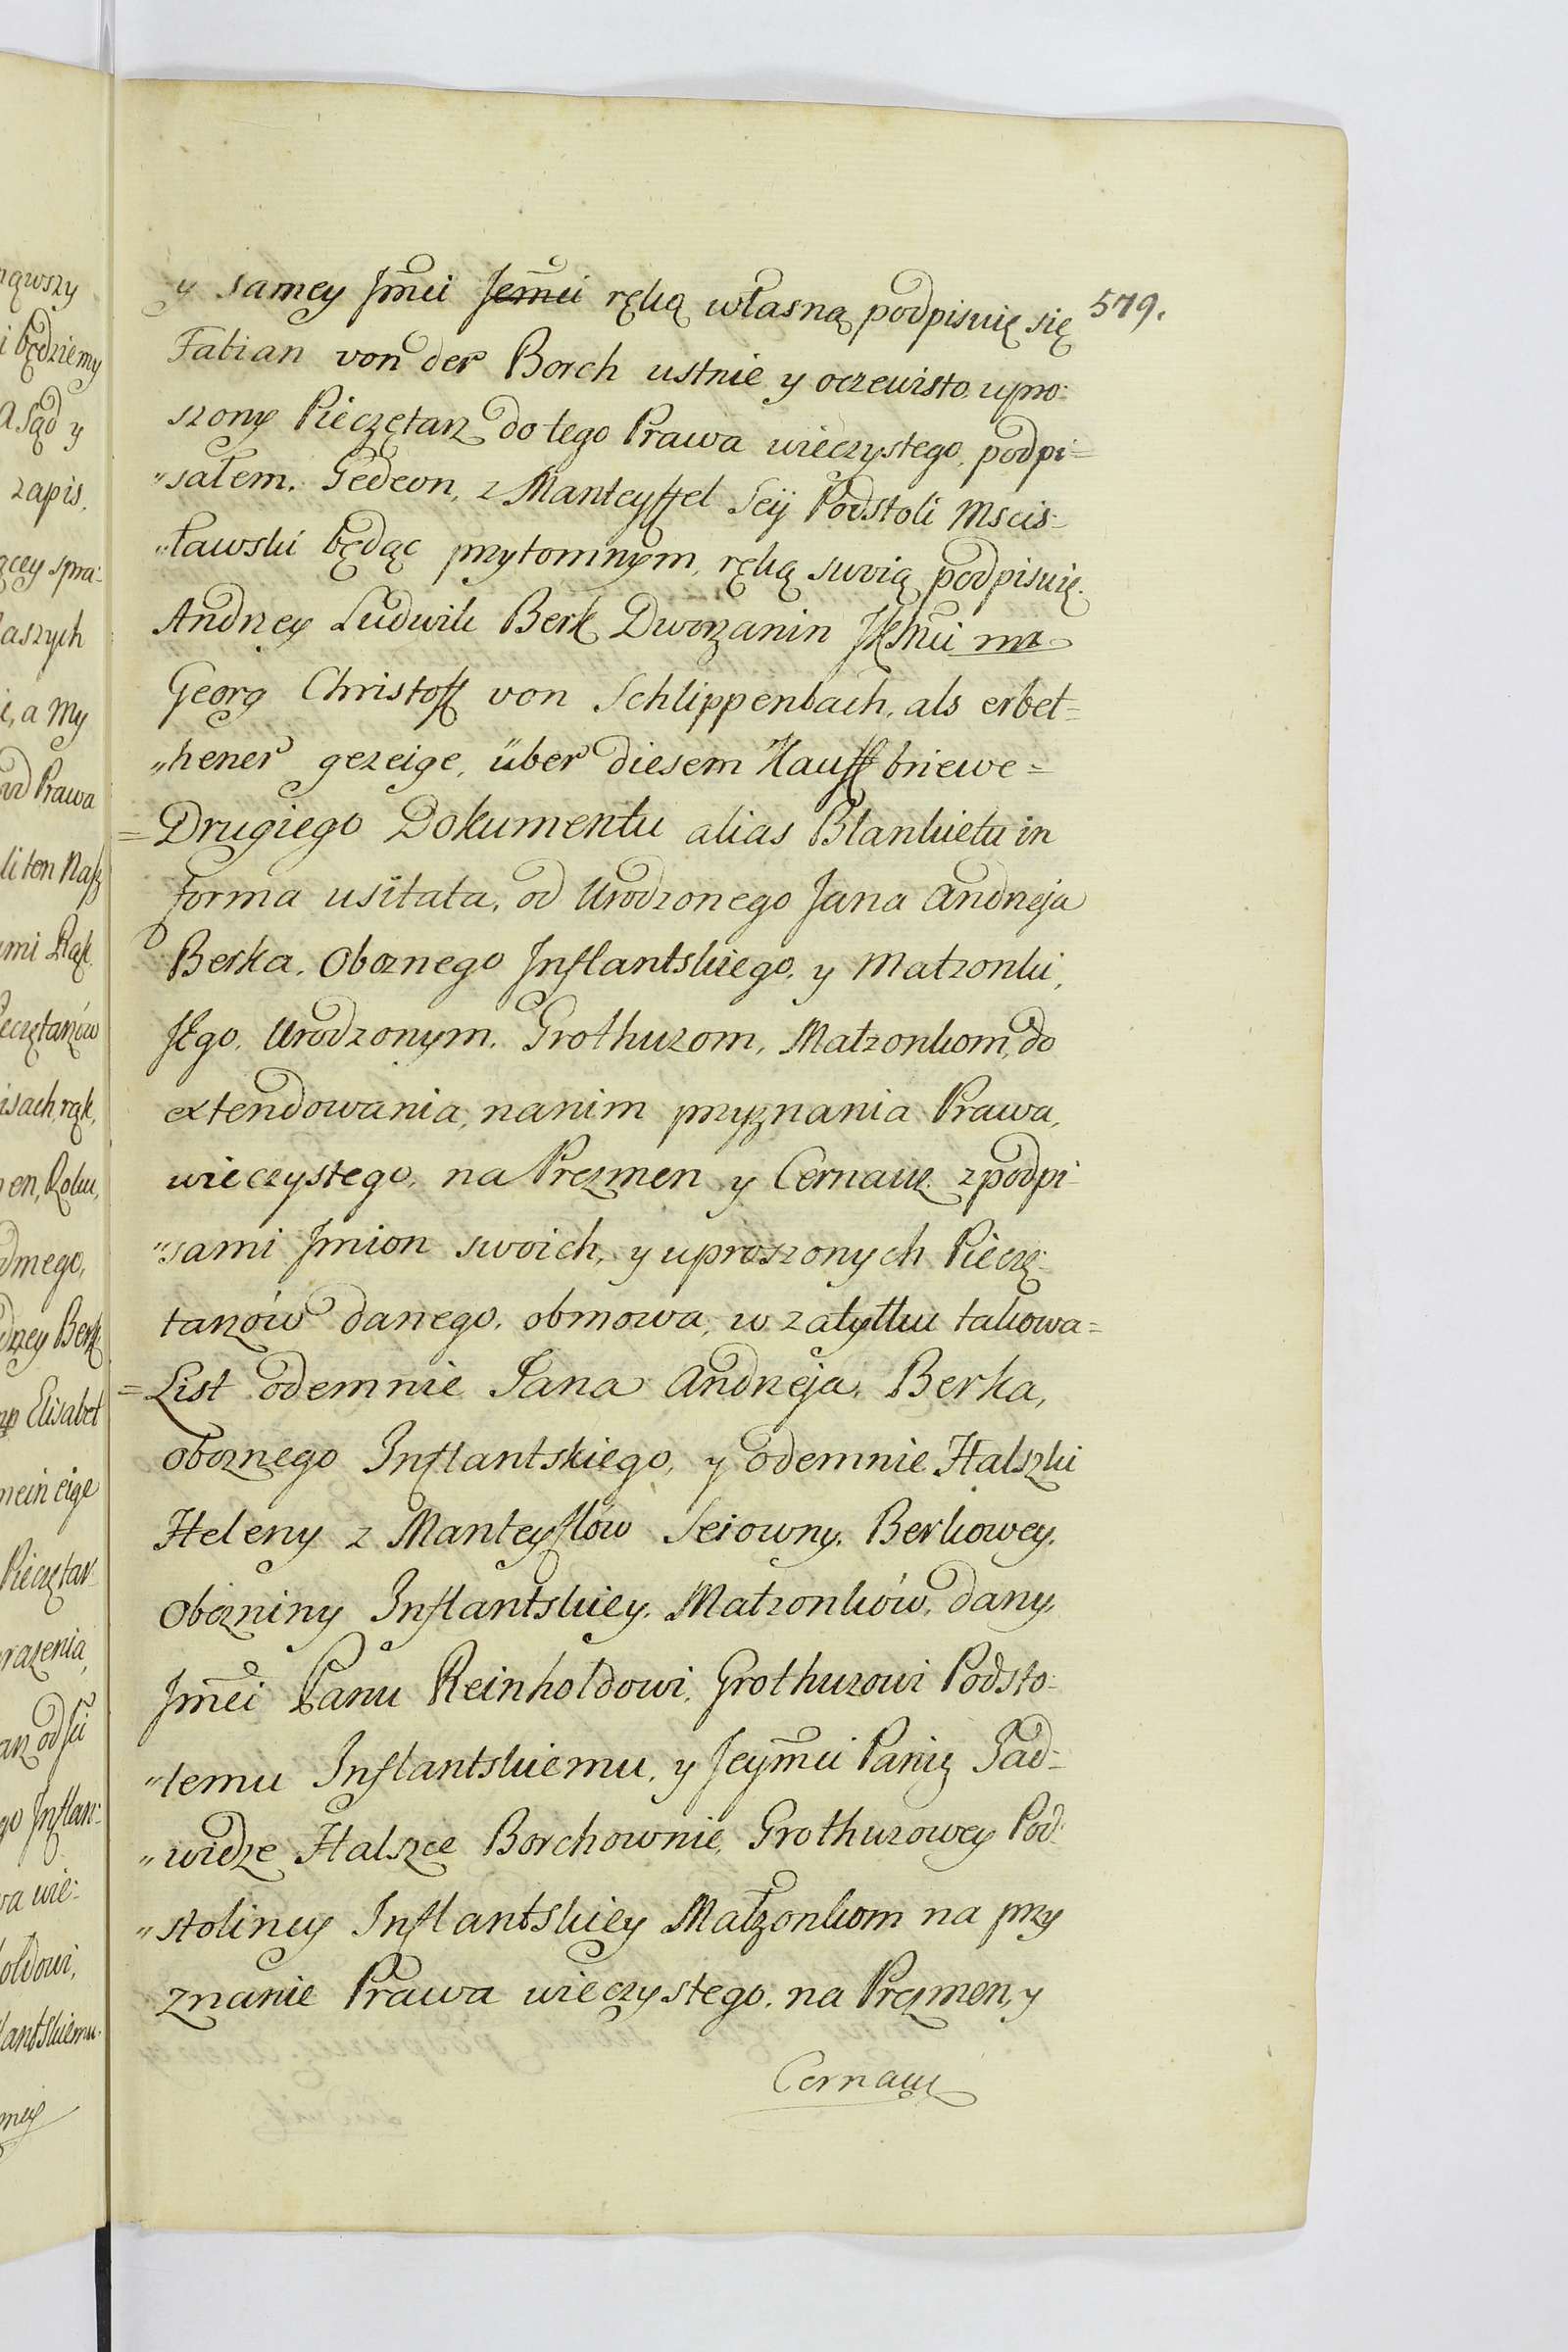 y samey Jmći Jemći ręką własną podpisuię się 579.
Fabian von der Borch ustnie y oczewisto upro:
szony Pieczętarz do tego Prawa wieczystego, podpi=
"sałem. Gedeon, z Manteyffel Seÿ Podstoli Mscis=
"ławski będąc przytomnym, ręką swoią podpisuię.
Andrzey Ludwik Berk Dworzanin JKMći mp
Georg Christoff von Schlippenbach, als erbet=
"hener gezeige, über diesem Kauff briewe=
=Drugiego Dokumentu alias Blankietu in
forma usitata, od Urodzonego Jana Andrzeja
Berka, Oboznego Inflantskiego, y Małzonki,
JEgo, Urodzonym, Grothuzom, Małzonkom, do
extendowania, nanim przyznania Prawa,
wieczystego, na Prezmen y Cernauz, z podpi=
"sami Jmion swoich, y uproszonych Pieczę=
tarzów danego, obmowa, w załytku takowa=
=List odemnie Jana Andrzeja, Berka,
oboznego Inflantskiego, y odemnie Halszki
Heleny z Manteyflów Seiowny, Berkowey,
Obozniny Inflantskiey, Małzonków, dany,
Jmći Panu Reinholdowi, Grothuzowi Podsto=
"lemu Inflantskiemu, y Jeymći Panię Jad=
"widze Halszce Borchownie, Grothuzowey Pod=
"stoliney Inflantskiey Małzonkom na przy
znanie Prawa wieczystego, na Prezmen, y
Cernauz
nąwszy
i będziemy
a sąd y
zapis.
ącey spra:
aszych
e, a My
od Prawa
li ten Nasz
mi Rąk.
eczętarzów
isach, rąk,
en, Roku,
dmego,
drzey Berk
mp Elisabet
mein eige
Pieczętar
razenia,
arz od
go Inflan:
va wie:
oldowi,
lantskiemu.
mey